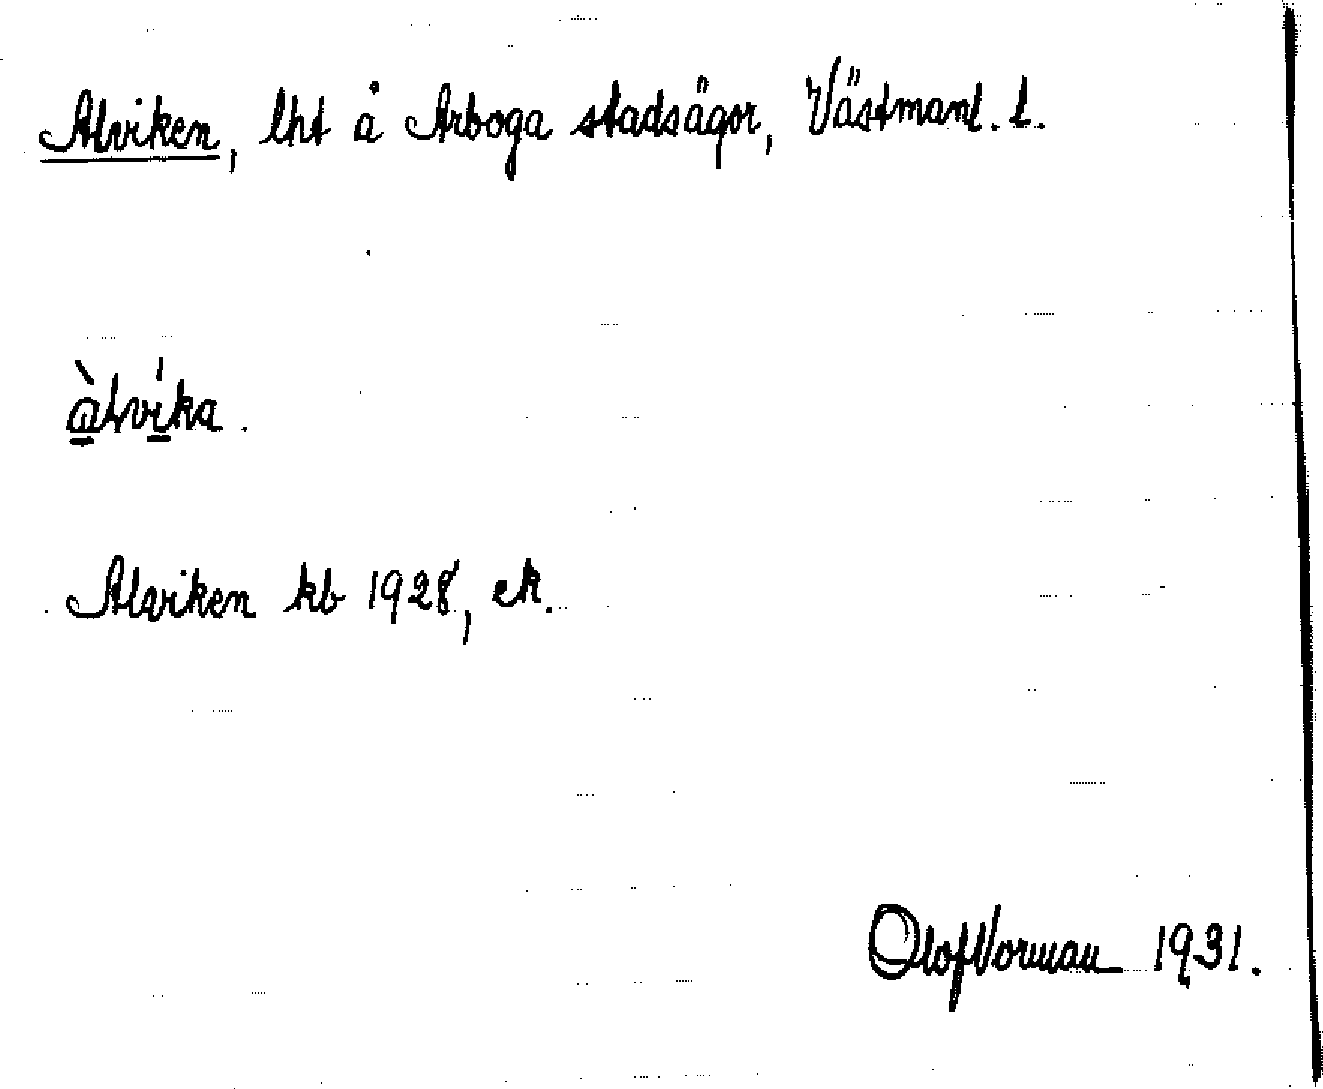 Alviken, lht å Arboga stadsägor, Västmanl. l.
àlvi̍ka.
Alviken kb 1928, ek.
Olof Vorman 1931.